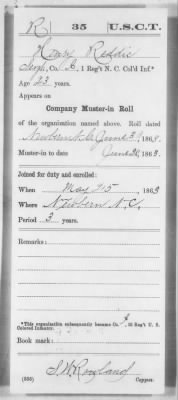 R | 35 | U.S.C.T.
Henry Reddic
Sergt, Co. B, 1 Reg't N. C. Col'd Inf*
Age 23 years.
Appears on
Company Muster-in Roll
of the organization named above. Roll dated
Newbern N.C. June 31, 1863.
Muster-in to date June 30, 1863.
Joined for duty and enrolled:
When May 25, 1863
Where Newbern N.C.
Period 3 years.
Remarks:
*This organization subsequently became Co. , 35 Reg't U. S.
Colored Infantry.
Book mark:
S W Rowland
(356) Copyist.